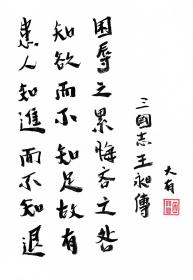 患人知進而不知退
知欲而不知足故有
困辱之累悔吝之咎
三國志王昶傳
大有